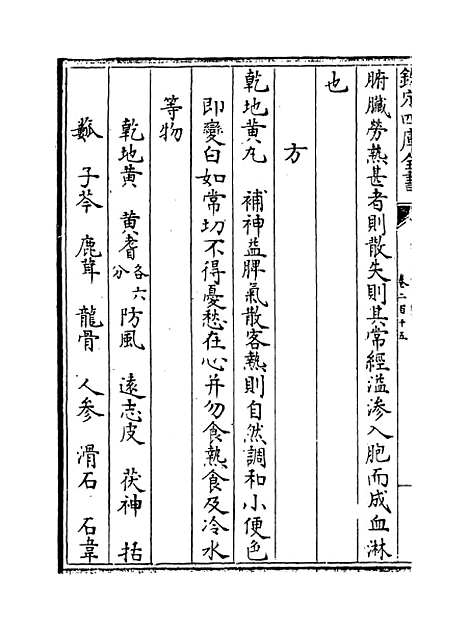 欽定四庫全書
卷二百十五
腑臟勞熱甚者則散失則其常經溢滲入胞而成血淋
也
方
乾地黄丸 補神益脾氣散客熱則自然調和小便色
即變白如常切不得憂愁在心并勿食熱食及冷水
等物
乾地黄 黄耆各六分 防風 遠志皮 茯神 括
蓏 子芩 鹿茸 龍骨 人參 滑石 石韋